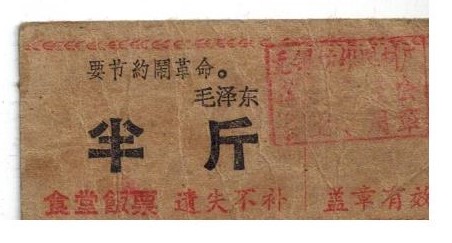 要节約鬧革命。
毛泽东
半斤
食堂飯票 遺失不补 盖章有效